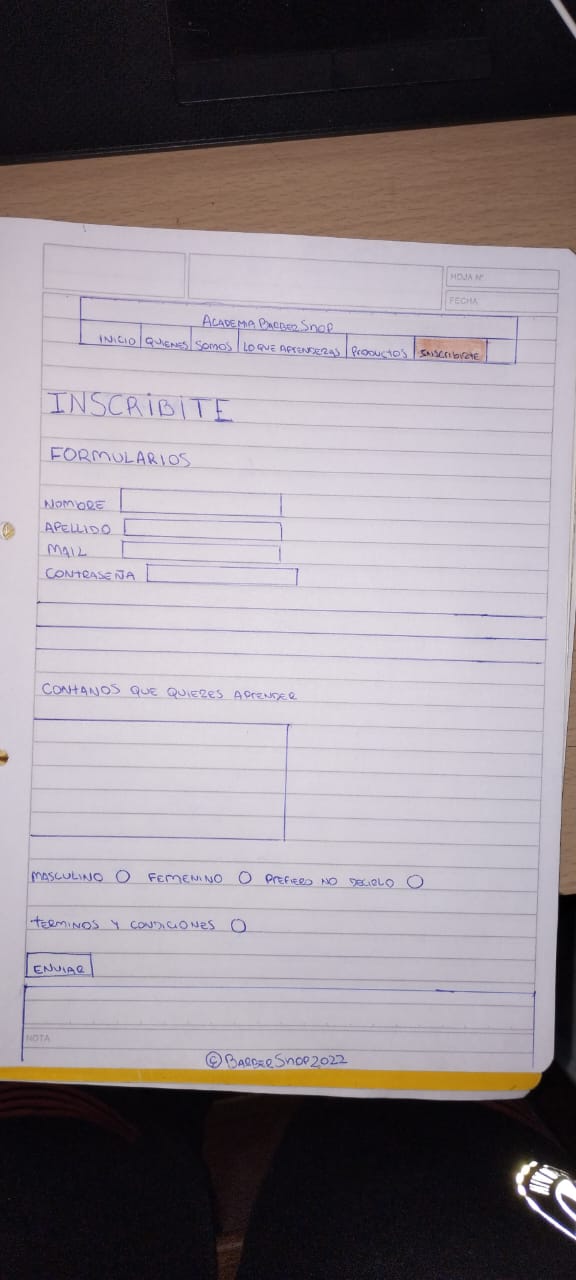 HOJA Nº
FECHA
ACADEMIA BARBER SHOP
INICIO QUIENES SOMOS LO QUE APRENDERAS PRODUCTOS SUSCRIBIRTE
INSCRIBITE
FORMULARIOS
NOMBRE
APELLIDO
MAIL
CONTRASEÑA
CONTANOS QUE QUIERES APRENDER
MASCULINO FEMENINO PREFIERO NO DECIRLO
TERMINOS Y CONDICIONES
ENVIAR
NOTA
©BARBER SHOP 2022